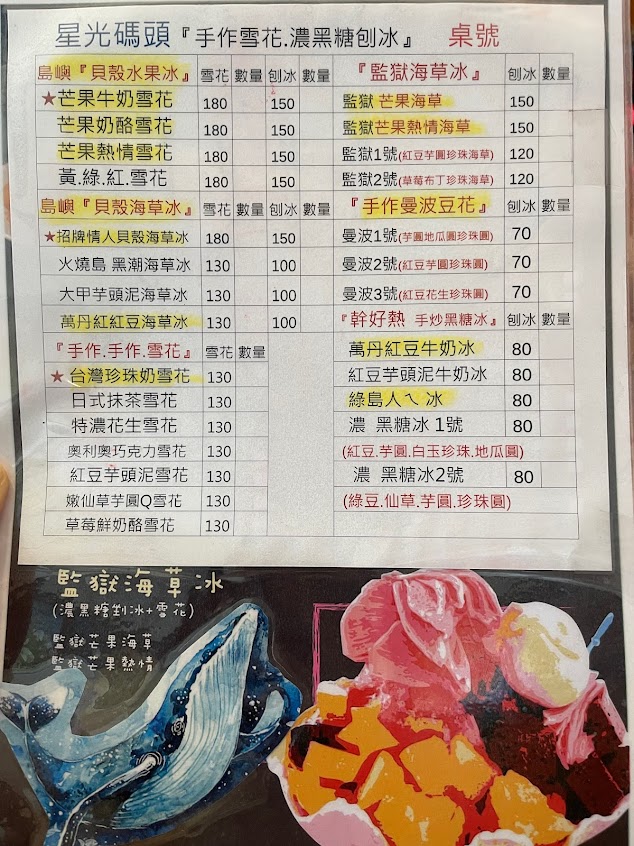 星光碼頭『手作雪花.濃黑糖刨冰』 桌號
島嶼『貝殼水果冰』 雪花 數量 刨冰 數量
★芒果牛奶雪花 180 150
芒果奶酪雪花 180 150
芒果熱情雪花 180 150
黃.綠.紅.雪花 180 150
島嶼『貝殼海草冰』 雪花 數量 刨冰 數量
★招牌情人貝殼海草冰 180 150
火燒島 黑潮海草冰 130 100
大甲芋頭泥海草冰 130 100
萬丹紅紅豆海草冰 130 100
『手作.手作.雪花』 雪花 數量
★台灣珍珠奶雪花 130
日式抹茶雪花 130
特濃花生雪花 130
奧利奧巧克力雪花 130
紅豆芋頭泥雪花 130
嫩仙草芋圓Q雪花 130
草莓鮮奶酪雪花 130
『監獄海草冰』 刨冰 數量
監獄 芒果海草 150
監獄芒果熱情海草 150
監獄1號(紅豆芋圓珍珠海草) 120
監獄2號(草莓布丁珍珠海草) 120
『手作曼波豆花』 刨冰 數量
曼波1號(芋圓地瓜圓珍珠圓) 70
曼波2號(紅豆芋圓珍珠圓) 70
曼波3號(紅豆花生珍珠圓) 70
『幹好熱 手炒黑糖冰』 刨冰 數量
萬丹紅豆牛奶冰 80
紅豆芋頭泥牛奶冰 80
綠島人ㄟ冰 80
濃 黑糖冰 1號 80
(紅豆.芋圓.白玉珍珠.地瓜圓)
濃 黑糖冰2號 80
(綠豆.仙草.芋圓.珍珠圓)
監獄海草冰
(濃黑糖剉冰+雪花)
監獄芒果海草
監獄芒果熱情